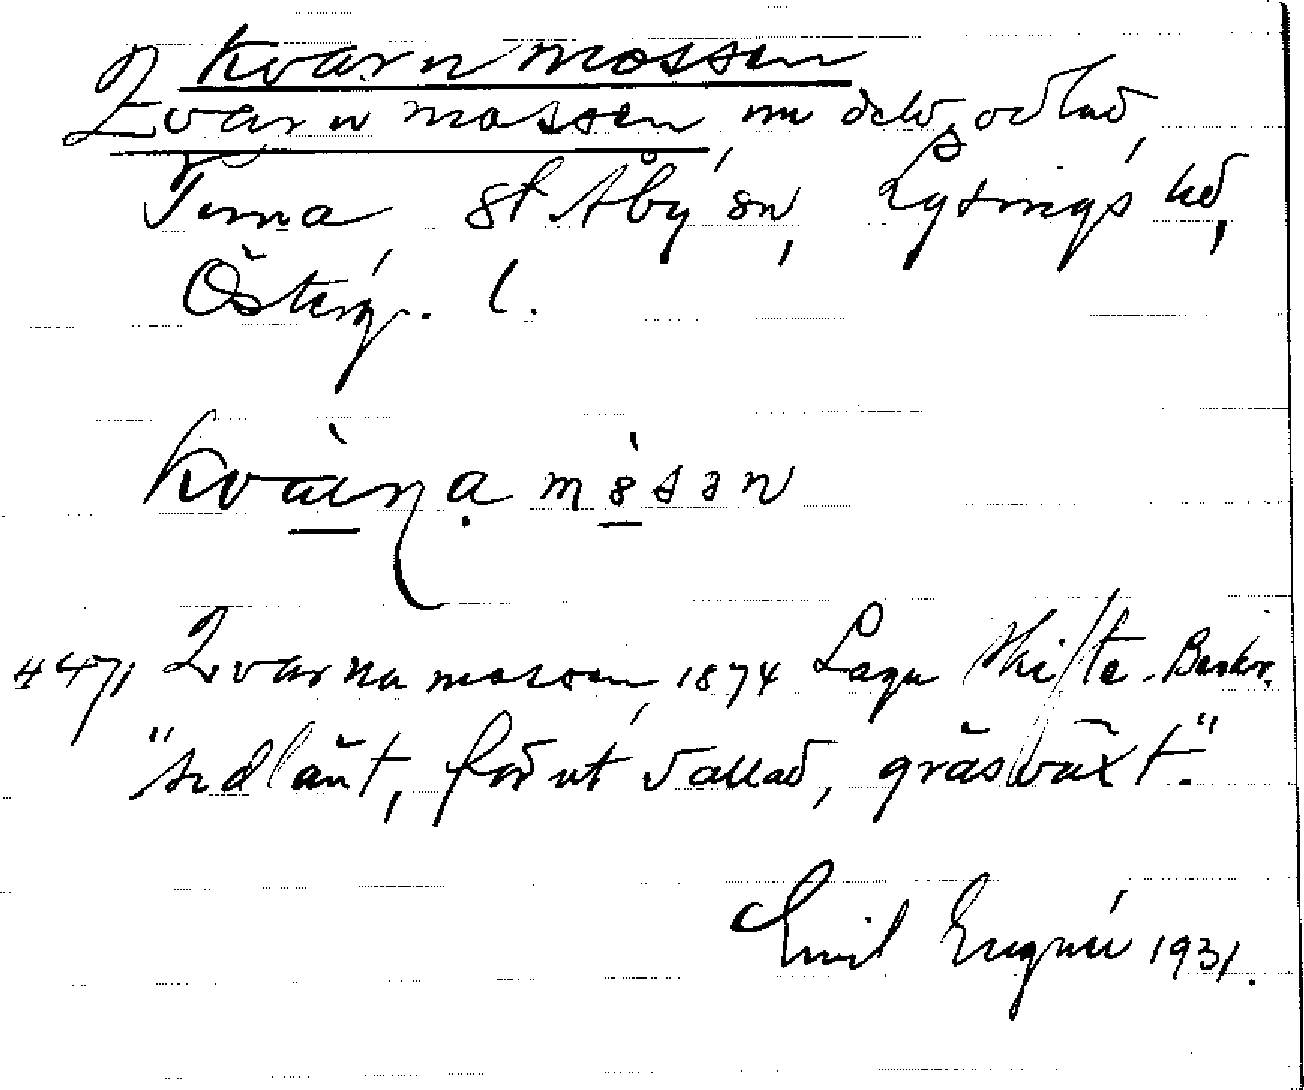 Kvarnmossen
Qvarnmossen, nu delv. odlad,
Tima, St. Åby sn, Lysings hd,
Österg. l.
kvɑ̀ɳa mòsən
4471 Qvarnamossen, 1874 Laga Skifte. Beskr.
"sidländt, förut vallad, gräsväxt."
Emil 1931.